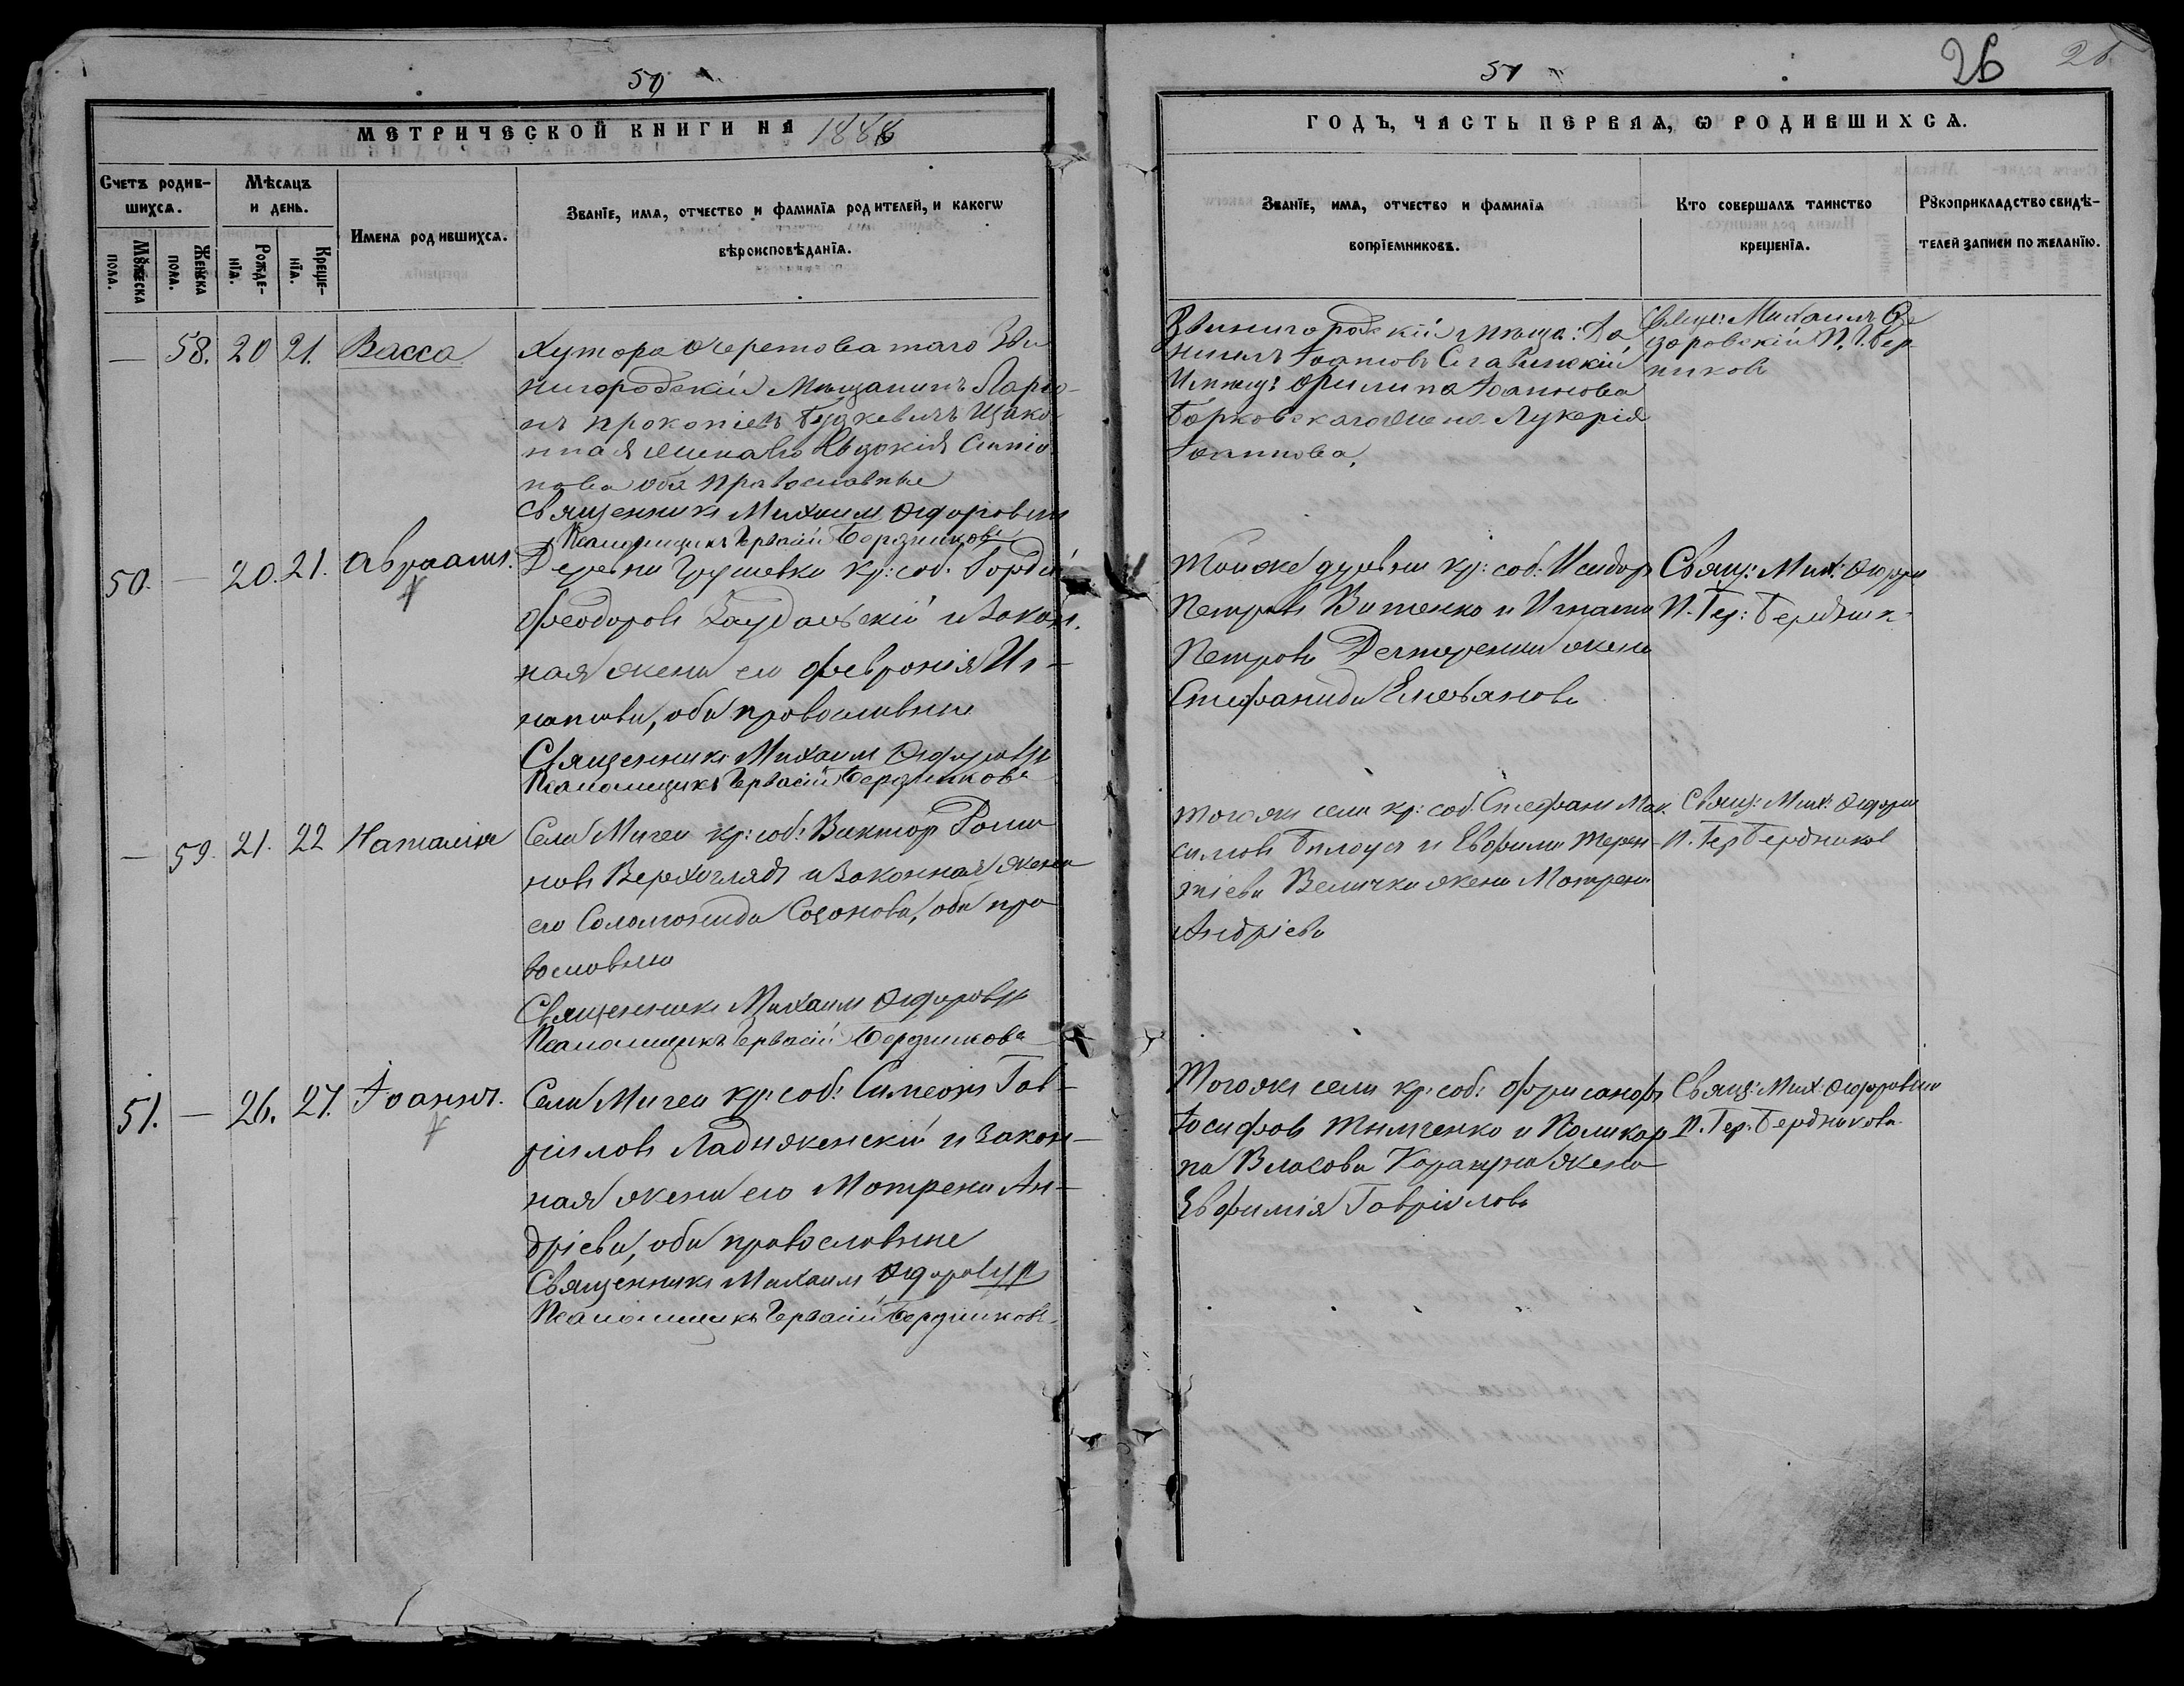 50
МЕТРИЧЕСКОЙ КНИГИ НА 1886
Счетъ родив-
шихся.
Мѣсяцъ
и день.
Имена родившихся.
Званїе, имя, отчество и фамилїя родителей, и какогѡ
вѣроисповѣданїя.
Мꙋжеска
пола.
Женска
пола.
Рожде-
нїя.
Креще-
нїя.
— 58. 20 21. Васса
Хутора Очеретоватаго Зве
нигородскій Мѣщанинъ Ларіо-
нъ Прокопіевъ Будкевичъ Изако
нная жена его Евдокія Анто
нова оба православные
Священникъ Михаилъ
Псаломщикъ Гервасій Бердниковъ
50. — 20. 21. Авраамъ.
Деревни Грушевки кр: соб: Гордій
Феодоровъ и Закон.
ная жена его Феврония Иг-
натова, оба православные
Священникъ Михаилъ
Псаломщикъ Гервасій Бердниковъ
— 59. 21. 22 Наталія
Села Мигеи кр: соб: Викторъ Рома
новъ Верхоглядъ и Законная жена
его Соломонида Созонова, оба пра
вославные
Священникъ Михаилъ
Псаломщикъ Гервасій Бердниковъ
51. — 26. 27. Іоаннъ.
Села Мигеи кр: соб: Симеонъ Гав-
ріиловъ Ладыженскій и Закон-
ная жена его Мотрена Ан-
дріева, оба православные
Священникъ Михаилъ
Псаломщикъ Гервасій Бердниковъ
51
26 26
ГОДЪ, ЧАСТЬ ПЕРВАЯ, Ѡ РОДИВШИХСЯ.
Званїе, имя, отчество и фамилїя
воспрїемниковъ.
Кто совершалъ таинство
крещенїя.
Рꙋкоприкладство свидѣ-
телей записи по желанїю.
Звенигородскій мѣща: Да
ніилъ Іоановъ Славинскій
И мѣщ: Филипа Іоаннова
Борковскаго жена Лукерія
Іоаннова,
Свящ: Михаилъ
П. Г. Бер
никовъ
Тойже деревни кр: соб: Исидоръ
Петровъ Витенко и Игнатія
Петрова жена
Стефанида Емельянова
Свящ: Мих:
П. Гер: Бердник
Тогоже села кр: соб. Стефанъ Мак.
симовъ Билоусъ и Евфимія Терен-
тіева Величка жена Мотрена
Андріева
Свящ: Мих:
П. Гер Бердников
Тогоже села кр: соб: Хрисанфъ
Іосифовъ Тимченко и Поликар
па Власова жена
Евфимія Гавріилова
Свящ: Мих:
П. Гер. Бердниковъ